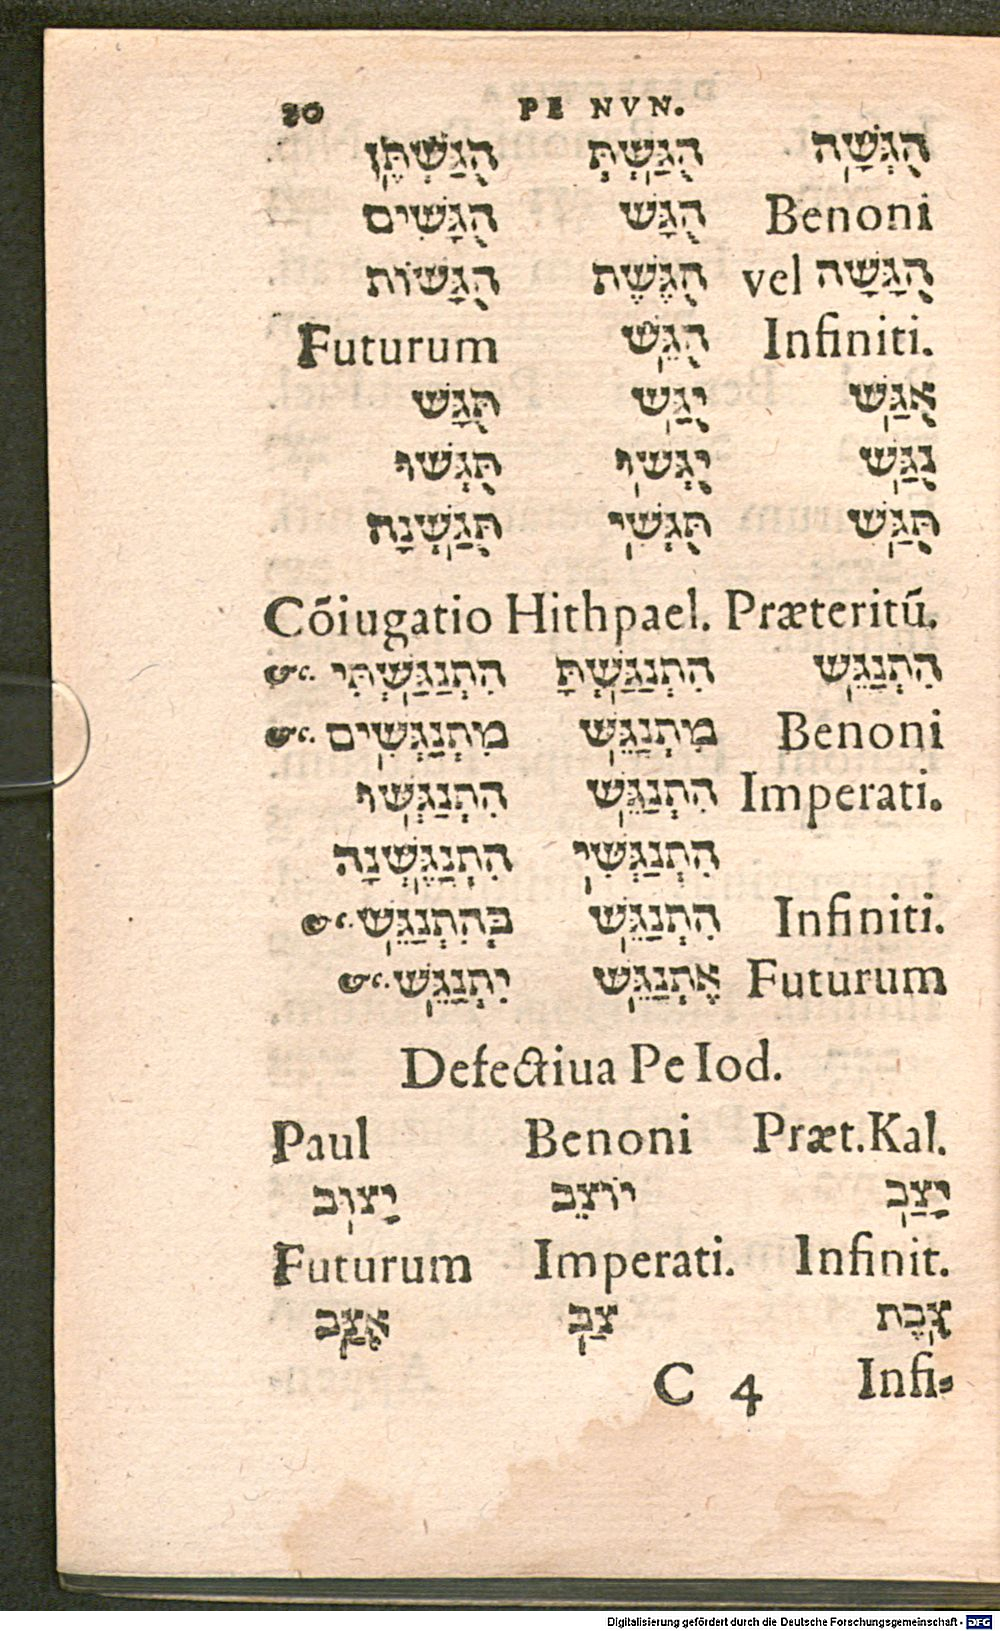 20 PE NVN.
הֻגְּשָׁה הֻגַּשְׁתְּ הֻגַּשְׁתֶּן
Benoni הֻגָּשׁ הֻגָּשִׁים
הֻגָּשָׁה vel הֻגֶּשֶׁת הֻגָּשׁוֹת
Infiniti. הֻגֵּשׁ Futurum
אֻגַּשׁ יֻגַּשׁ תֻּגָּשׁ
נֻגַּשׁ יֻגְּשׁוּ תֻּגְּשׁוּ
תֻּגַּשׁ תֻּגְּשִׁי תֻּגַּשְׁנָה
Cōiugatio Hithpael. Præteritū.
הִתְנַגֵּשׁ הִתְנַגַּשְׁתָּ הִתְנַגַּשְׁתִּי &c.
Benoni מִתְנַגֵּשׁ מִתְנַגְּשִׁים &c.
Imperati. הִתְנַגֵּשׁ הִתְנַגְּשׁוּ
הִתְנַגְּשִׁי הִתְנַגֶּשְׁנָה
Infiniti. הִתְנַגֵּשׁ בְּהִתְנַגֵּשׁ &c.
Futurum אֶתְנַגֵּשׁ יִתְנַגֵּשׁ &c.
Defectiua Pe Iod.
Præt.Kal. Benoni Paul
יָצַב יוֹצֵב יָצוּב
Infinit. Imperati. Futurum
צֶבֶת צַב אֵצַב
C 4 Infi-
Digitalisierung gefördert durch die Deutsche Forschungsgemeinschaft - DFG